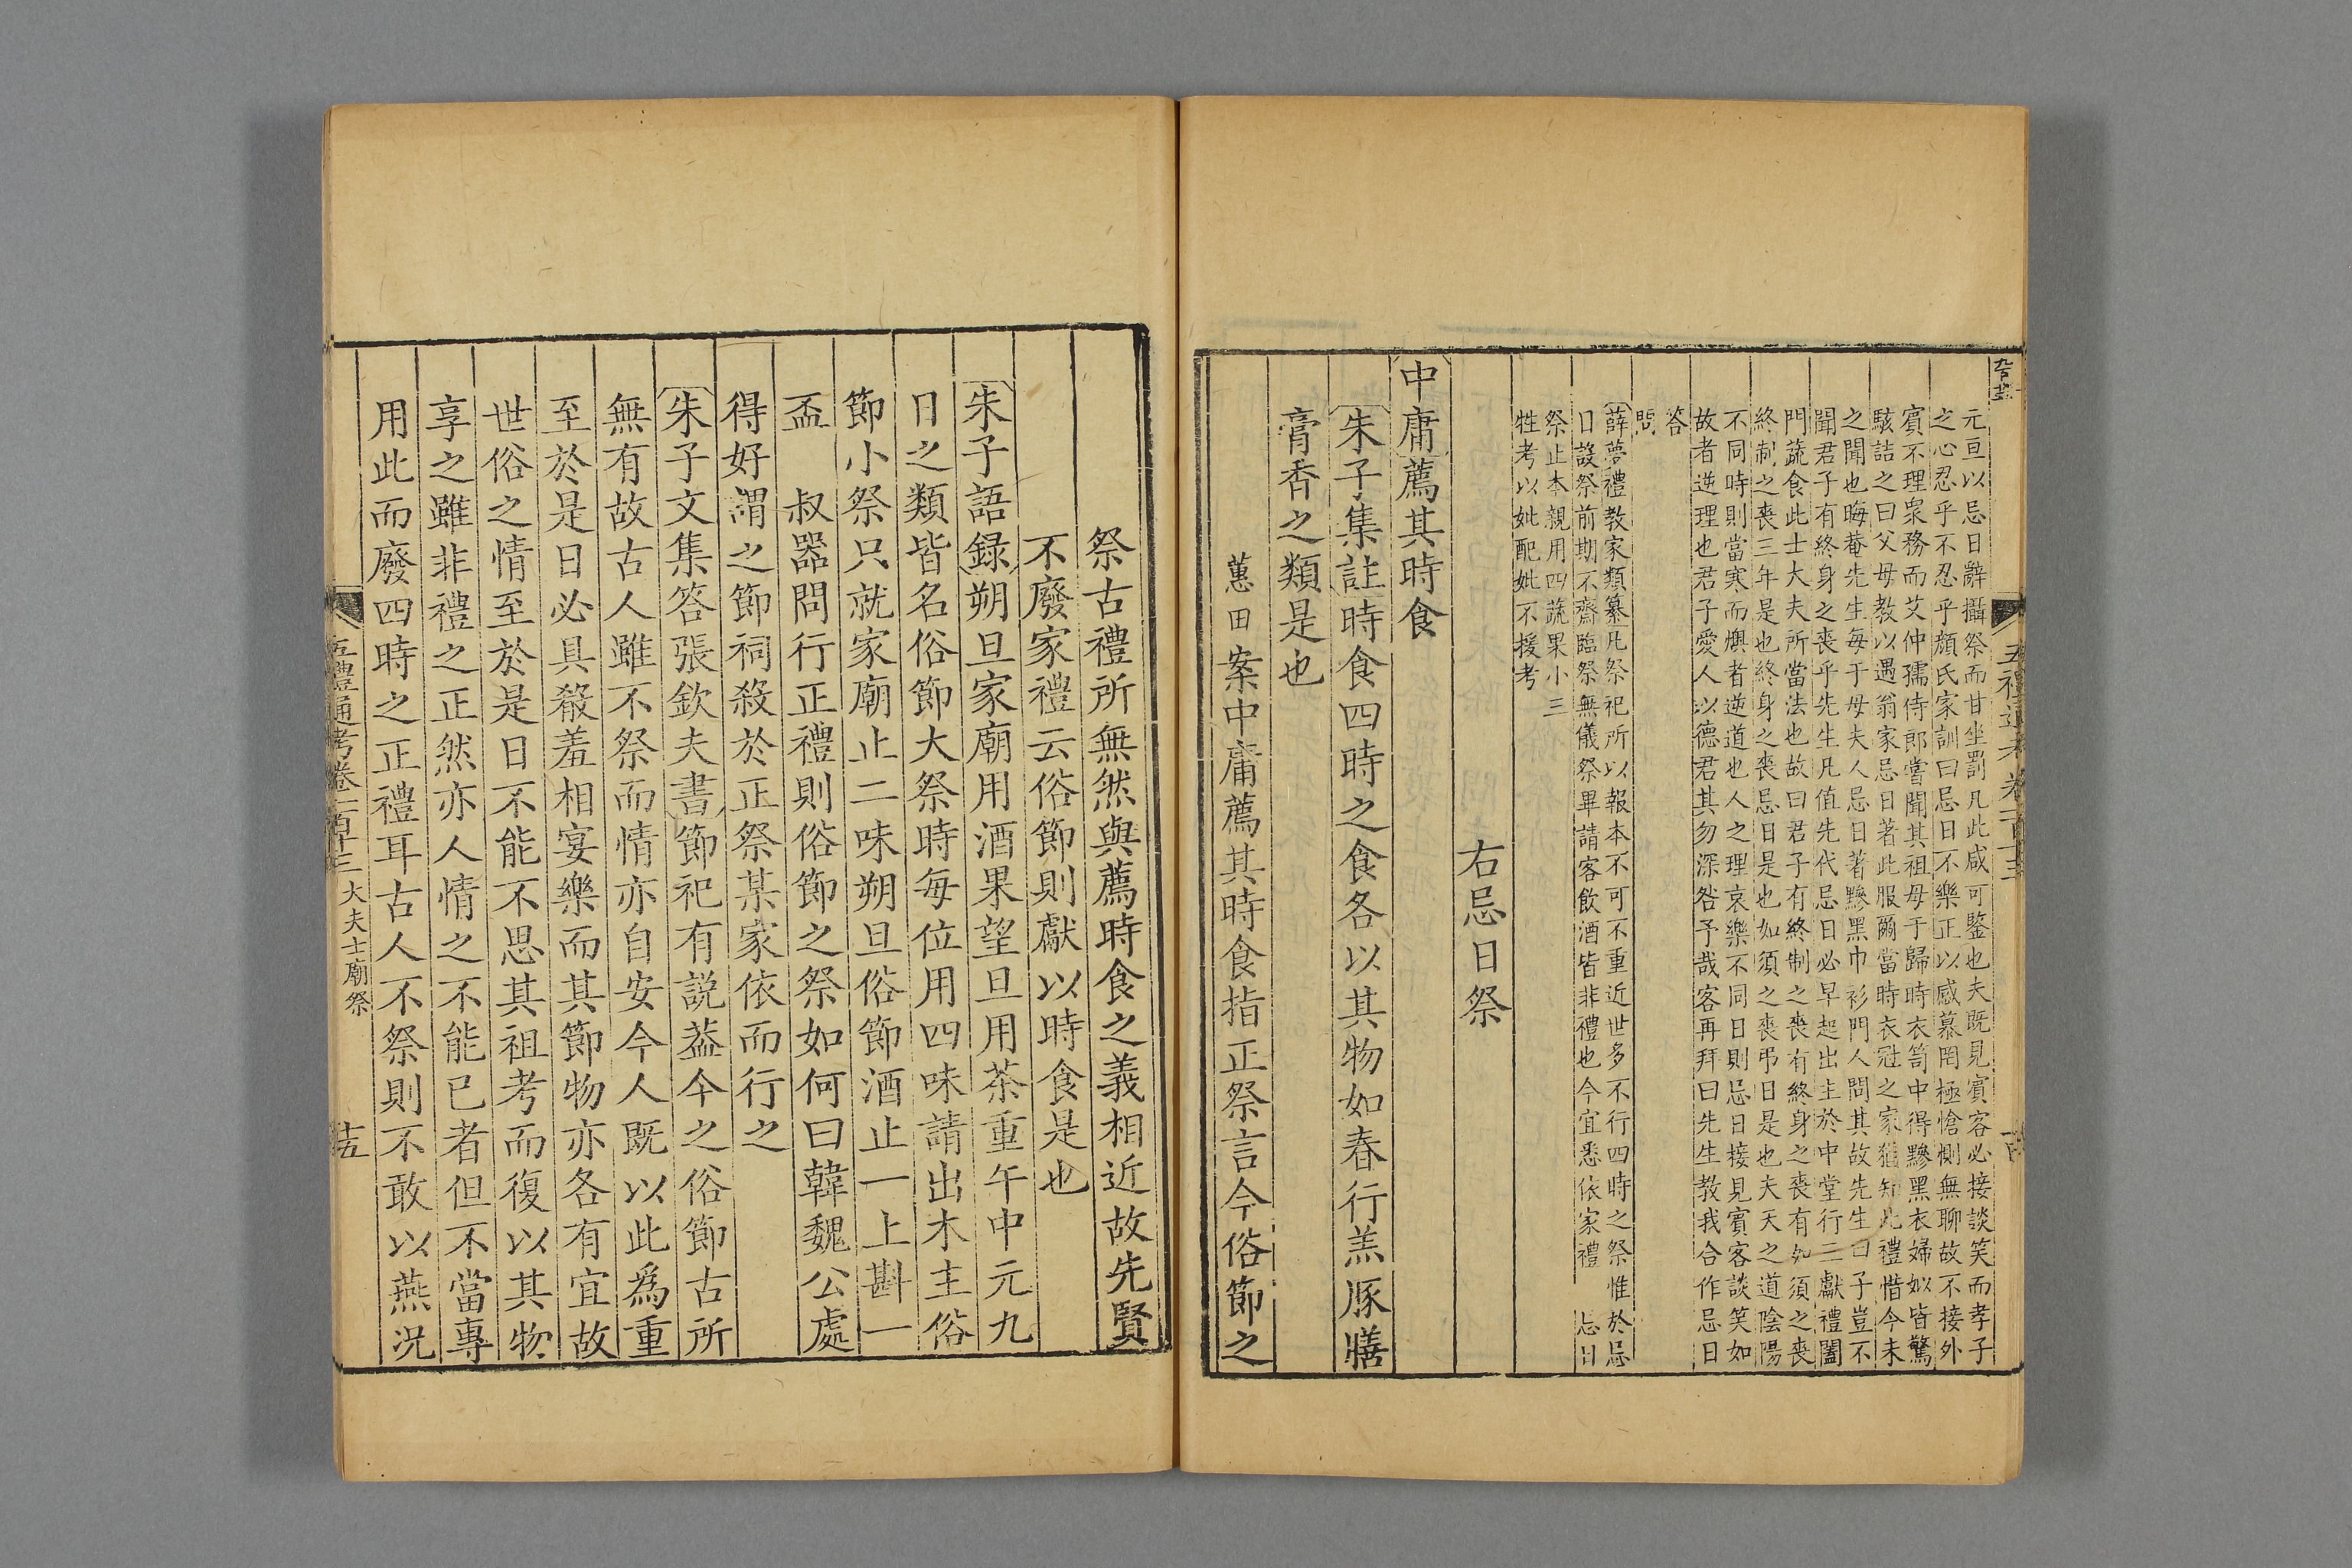 元亘以忌日辭攝祭而甘坐罰凡此咸可鑒也夫既見賓客必接談笑而孝子
之心忍乎不忍乎顏氏家訓曰忌日不樂正以感慕罔極愴惻無聊故不接外
賓不理衆務而艾仲孺侍郎嘗聞其祖母于歸時衣笥中得黲黑衣婦姒皆驚
駭詰之曰父母教以遇翁家忌日著此服爾當時衣冠之家猶知此禮惜今未
之聞也晦菴先生每于母夫人忌日著黲黑巾衫門人問其故先生曰子豈不
聞君子有終身之喪乎先生凡值先代忌日必早起出主於中堂行三獻禮闔
門蔬食此士大夫所當法也故曰君子有終制之喪有終身之喪有如須之喪
終制之喪三年是也終身之喪忌日是也如須之喪弔日是也夫天之道陰陽
不同時則當寒而燠者逆道也人之理哀樂不同日則忌日接見賓客談笑如
故者逆理也君子愛人以德君其勿深咎予哉客再拜曰先生教我合作忌日
答
問
薛夢禮教家類纂凡祭祀所以報本不可不重近世多不行四時之祭惟於忌
日設祭前期不齋臨祭無儀祭畢請客飲酒皆非禮也今宜悉依家禮 忌日
祭止本親用四蔬果小三
牲考以妣配妣不援考
右忌日祭
中庸薦其時食
朱子集註時食四時之食各以其物如春行羔豚膳
膏香之類是也
蕙田案中庸薦其時食指正祭言今俗節之
祭古禮所無然與薦時食之義相近故先賢
不廢家禮云俗節則獻以時食是也
朱子語録朔旦家廟用酒果望旦用茶重午中元九
日之類皆名俗節大祭時每位用四味請出木主俗
節小祭只就家廟止二味朔旦俗節酒止一上斟一
盃 叔器問行正禮則俗節之祭如何曰韓魏公處
得好謂之節祠殺於正祭某家依而行之
朱子文集答張欽夫書節祀有説葢今之俗節古所
無有故古人雖不祭而情亦自安今人既以此爲重
至於是日必具殽羞相宴樂而其節物亦各有宜故
世俗之情至於是日不能不思其祖考而復以其物
享之雖非禮之正然亦人情之不能已者但不當專
用此而廢四時之正禮耳古人不祭則不敢以燕況
五禮通考卷一百十三 大夫士廟祭 十五